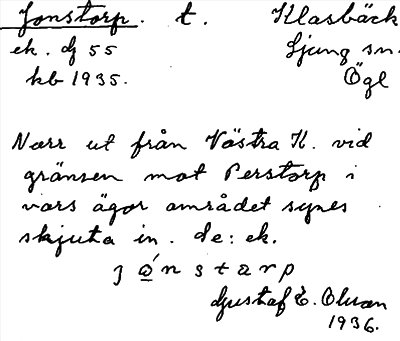 Jonstorp. t. Klasbäck
ek. dj 55 Ljung sn.
kb 1935. Ögl
Norr ut från Västra K. vid
gränsen mot Perstorp i
vars ägor området synes
skjuta in. de: ek.
jo̲´nstarp
Gustaf E. Olsson
1936.